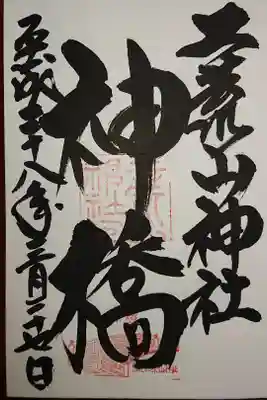 二荒山神社
神橋
平成二十八年三月二十七日